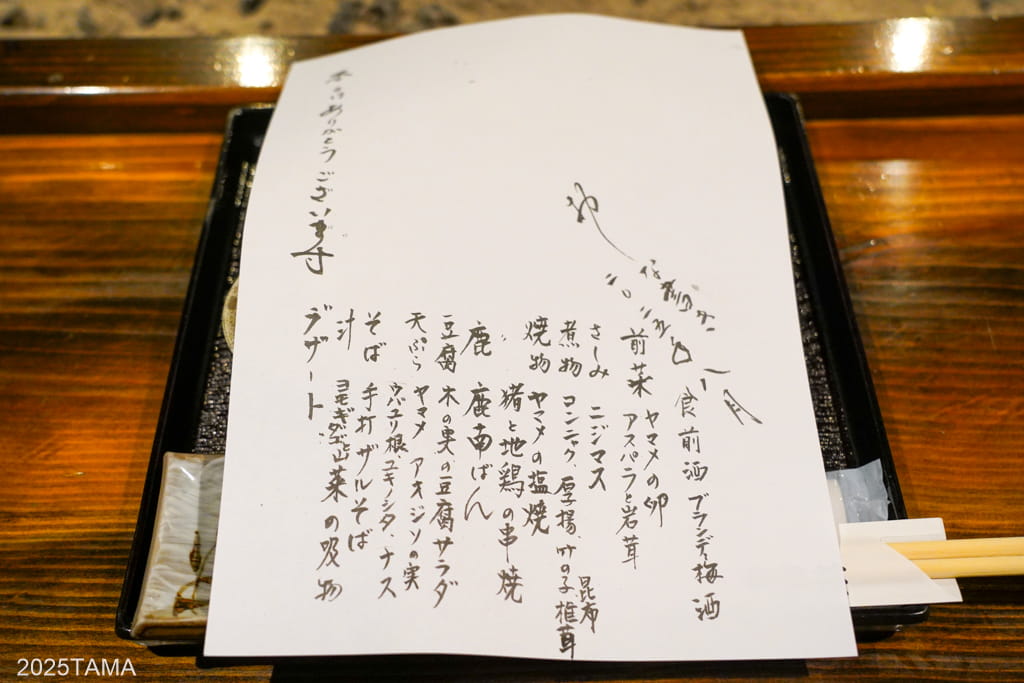 食前酒 ブランデー梅酒
前菜 ヤマメの卵
アスパラと岩茸
さしみ ニジマス
煮物 コンニャク、厚揚、竹の子 椎茸
昆布
焼物 ヤマメの塩焼
猪と地鶏の串焼
鹿 鹿南ばん
豆腐 木の実の豆腐サラダ
天ぷら ヤマメ アオジソの実
ウバユリ根、ユキノシタ、ナス
そば 手打ザルそば
汁 山菜の吸物
デザート
ありがとうございます
2025TAMA